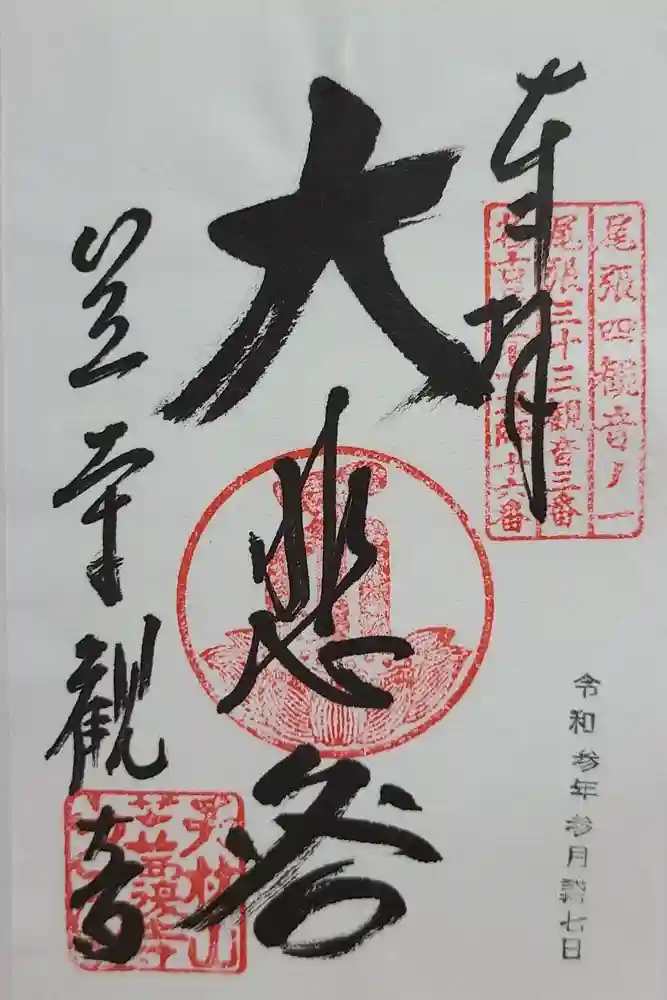 奉拝
尾張四観音ノ一
尾張三十三観音三番
大悲殿
令和参年参月貳七日
笠寺観音
天林山
笠覆寺